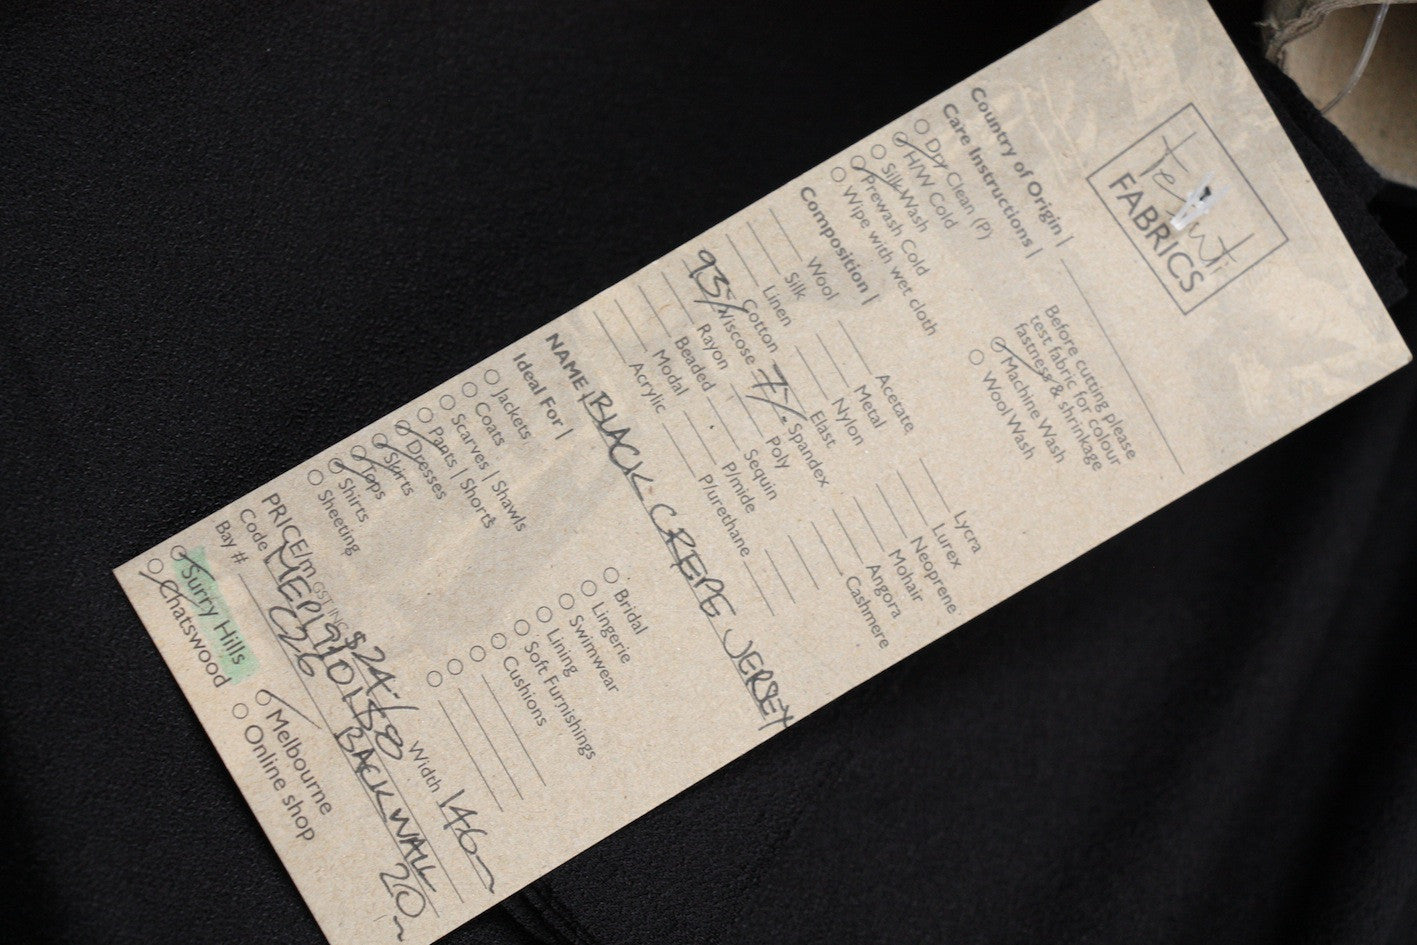 Tessuti
FABRICS
Before cutting please
test fabric for colour
fastness & shrinkage
Country of Origin |
Care Instructions |
Dry Clean (P)
H/W Cold
Silk Wash
Prewash Cold
Wipe with wet cloth
Machine Wash
Wool Wash
Composition |
Wool
Silk
Linen
Cotton
93% Viscose
Rayon
Beaded
Modal
Acrylic
Acetate
Metal
Nylon
Elast
7% Spandex
Poly
Sequin
P/mide
P/urethane
Lycra
Lurex
Neoprene
Mohair
Angora
Cashmere
NAME BLACK CREPE JERSEY
Ideal For |
Jackets
Coats
Scarves | Shawls
Pants | Shorts
Dresses
Skirts
Tops
Shirts
Sheeting
Bridal
Lingerie
Swimwear
Lining
Soft Furnishings
Cushions
PRICE/m GST INC $24- Width 146
Code
Bay # BACK WALL 20
Surry Hills
Chatswood
Melbourne
Online shop